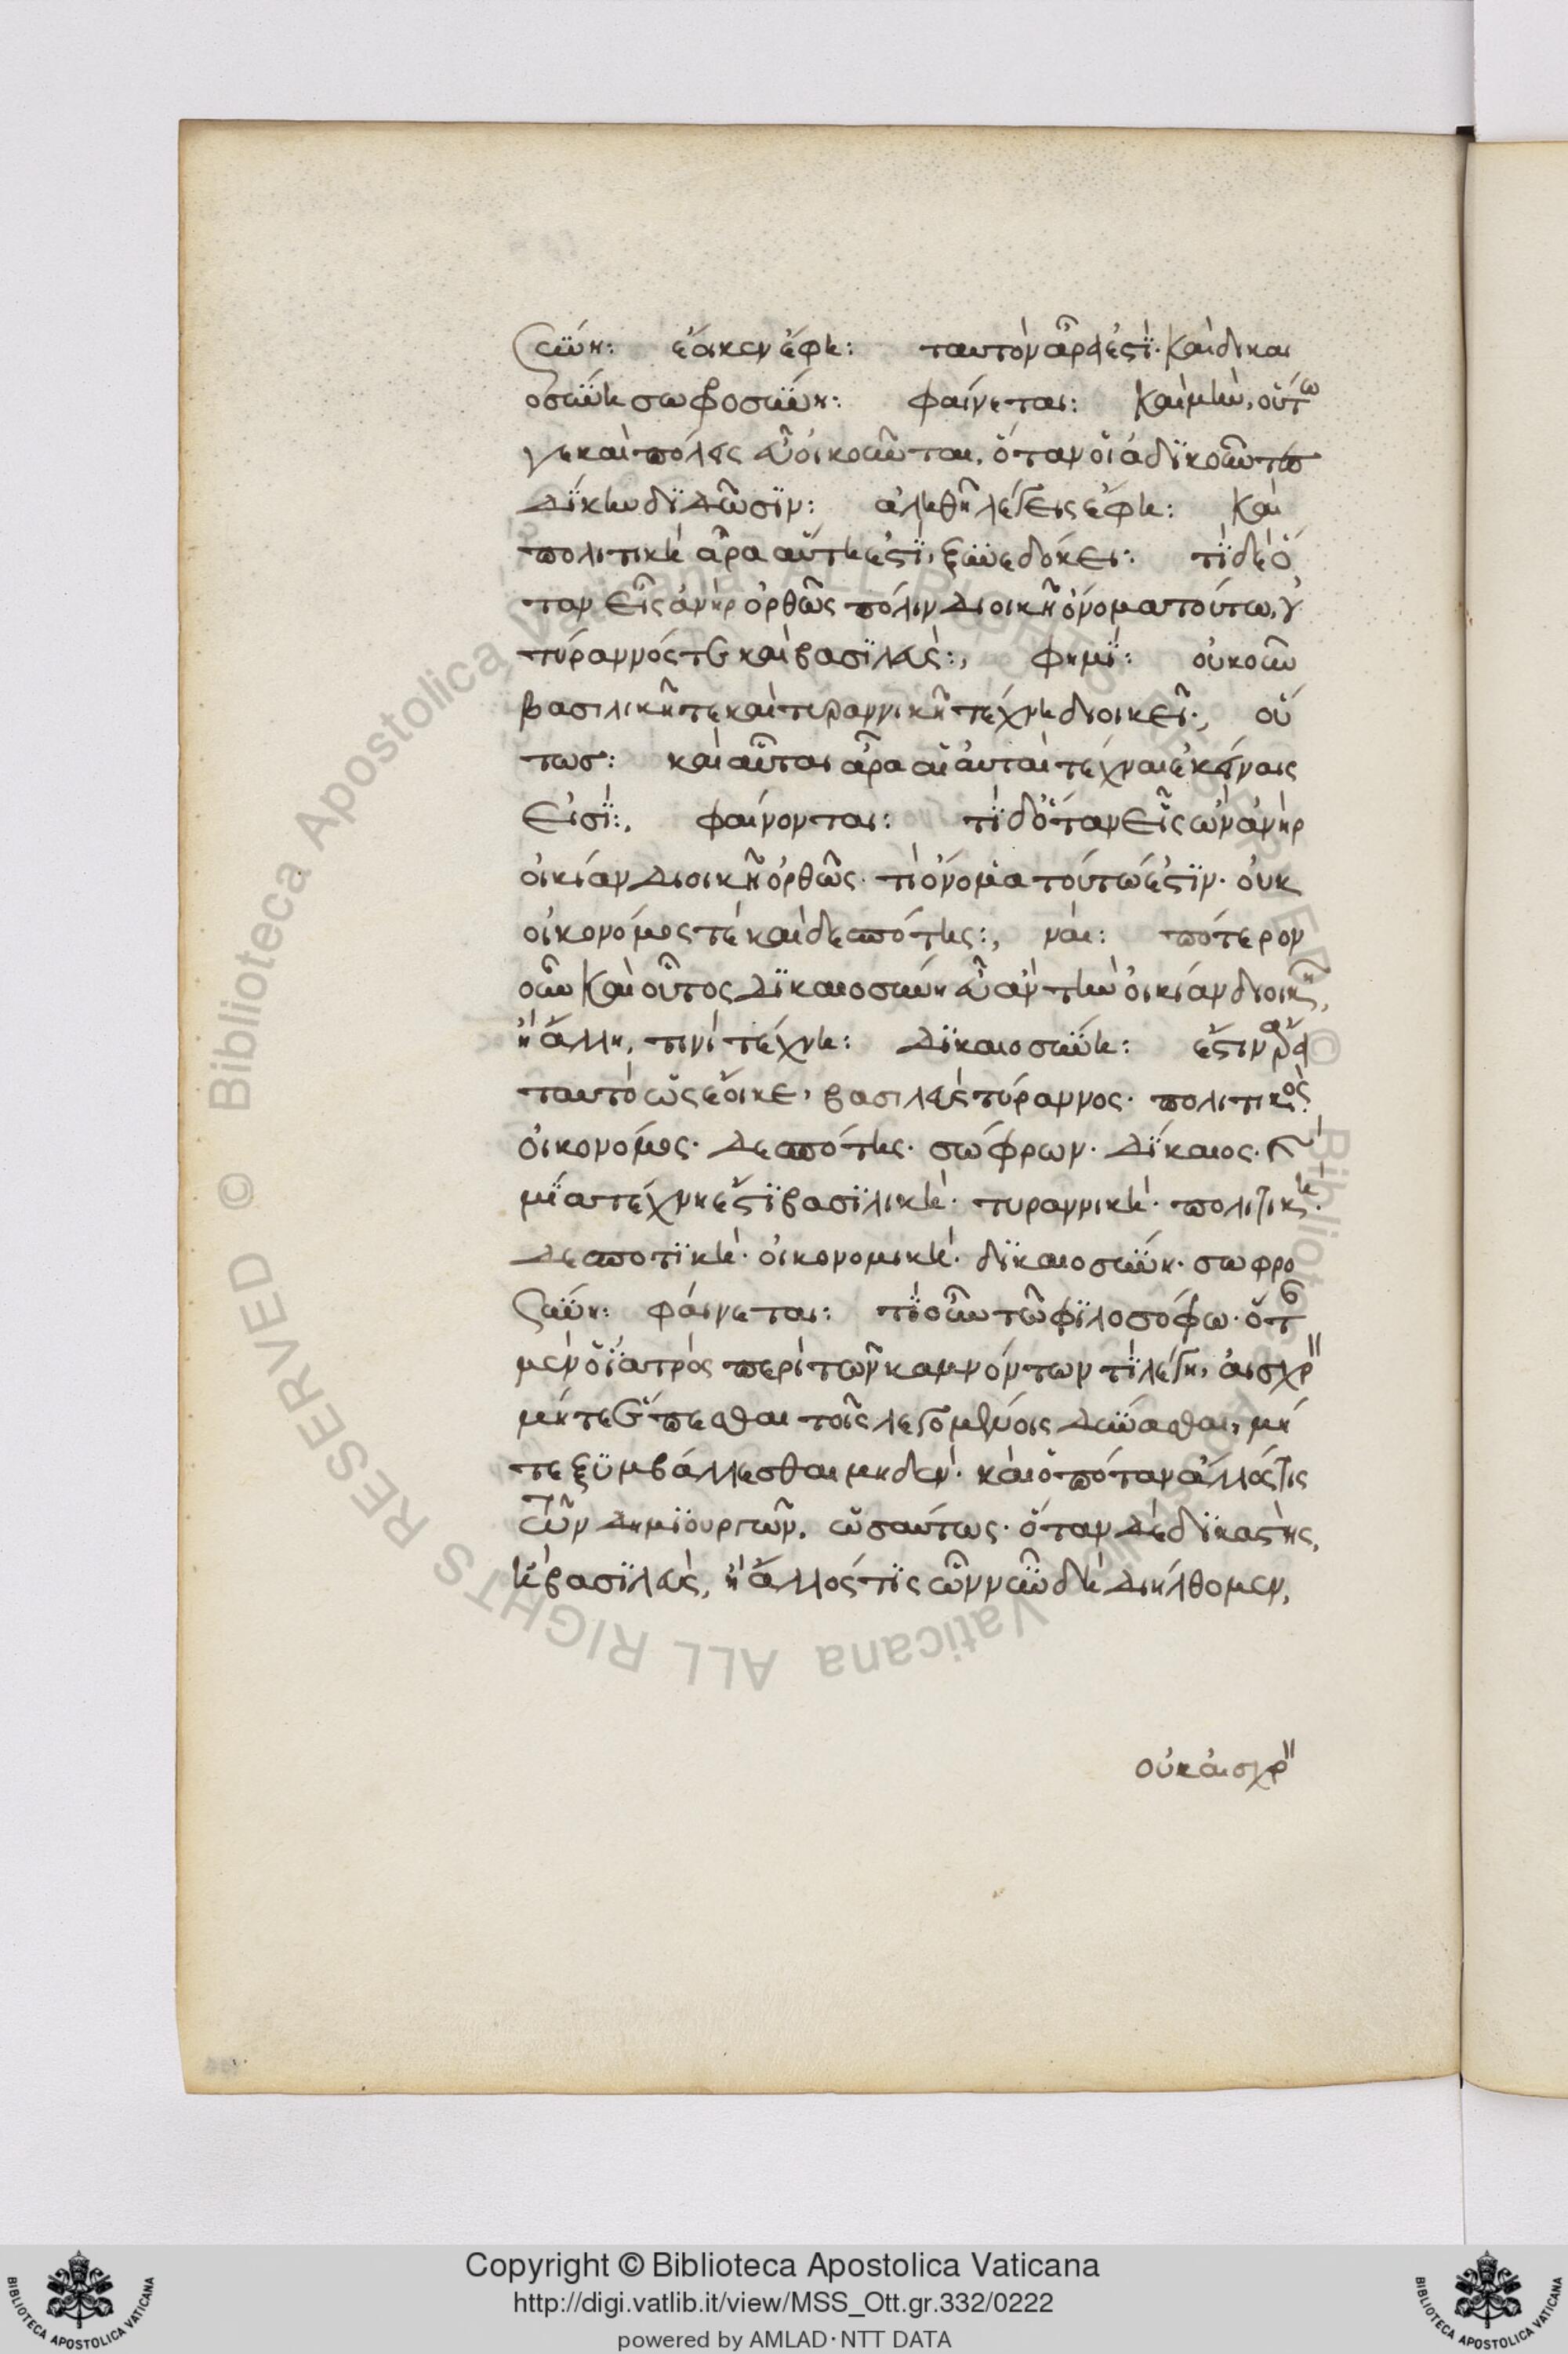 σύνη: ἔοικεν ἔφη: ταυτὸν ἄρα ἐστὶ. καὶ δικαι
οσύνη σωφροσύνη: φαίνεται: καὶ μὴν, οὕτω
γε καὶ πόλεις εὖ οἰκοῦνται, ὅταν οἱ ἀδικοῦντες
δίκην διδῶσιν: ἀληθῆ λέγεις ἔφη: καὶ
πολιτικὴ ἄρα αὕτη ἐστὶ, ξυνεδόκει: τί δὲ ὅ
ταν εἷς ἀνὴρ ὀρθῶς πόλιν διοικῇ ὄνομα τούτω, γ
τύραννός τε καὶ βασιλεὺς:, φημὶ: οὐκοῦν
βασιλικῇ τε καὶ τυραννικῇ τέχνη διοικεῖ:, οὕ
τως: καὶ αὗται ἄρα αἱ αὐταὶ τέχναι ἐκείναις
εἰσὶ:, φαίνονται: τί δ ὅταν εἷς ὢν ἀνὴρ
οἰκίαν διοικῇ ὀρθῶς. τί ὄνομα τούτω ἐστὶν. οὐκ
οἰκονόμος τὲ καὶ δεσπότης:, ναί: πότερον
οὖν καὶ οὗτος δικαιοσύνη εὖ ἂν τὴν οἰκίαν διοικῇ,
ἢ ἄλλη, τινὶ τέχνη: δικαιοσύνη: ἔστιν ἄρα
ταυτὸ ὡς ἔοικε, βασιλεὺς τύραννος. πολιτικὸς.
οἰκονόμος. δεσπότης. σώφρων. δίκαιος. καὶ
μία τέχνη ἐστὶ βασιλικὴ. τυραννικὴ. πολιτικὴ.
δεσποτικὴ. οἰκονομικὴ. δικαιοσύνη. σωφρο
σύνη: φαίνεται: τί οὖν τῶ φιλοσόφω. ὅτε
μὲν ὁ ἰατρὸς περὶ τῶν καμνόντων τὶ λέγη, αἰσχρ
μήτε ἕπεσθαι τοῖς λεγομένοις δύνασθαι, μή
τε ξυμβάλλεσθαι μηδὲν. καὶ ὁπόταν ἄλλός τις
τῶν δημιουργῶν, ὡσαύτως. ὅταν δὲ δικαστὴς,
ἢ βασιλεὺς, ἢ ἄλλός τις ὧν νῦν δὴ διήλθομεν,
οὐκ αἰσχρ
Copyright © Biblioteca Apostolica Vaticana
http://digi.vatlib.it/view/MSS_Ott.gr.332/0222
powered by AMLAD·NTT DATA